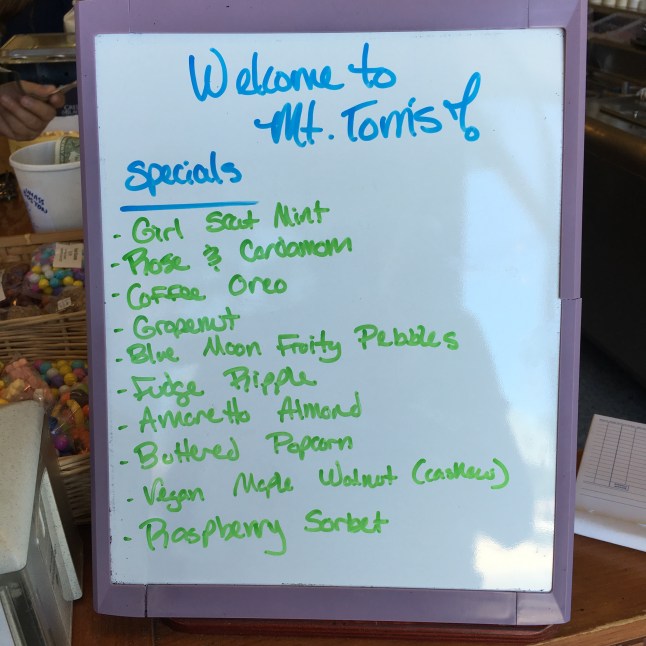 Welcome to
Mt. Tom's!
Specials
- Girl Scut Mint
- Rose & Cardamom
- Coffee Oreo
- Grapenut
- Blue Moon Fruity Pebbles
- Fudge Ripple
- Amaretto Almond
- Buttered Popcorn
- Vegan Maple Walnut (cashew)
- Raspberry Sorbet